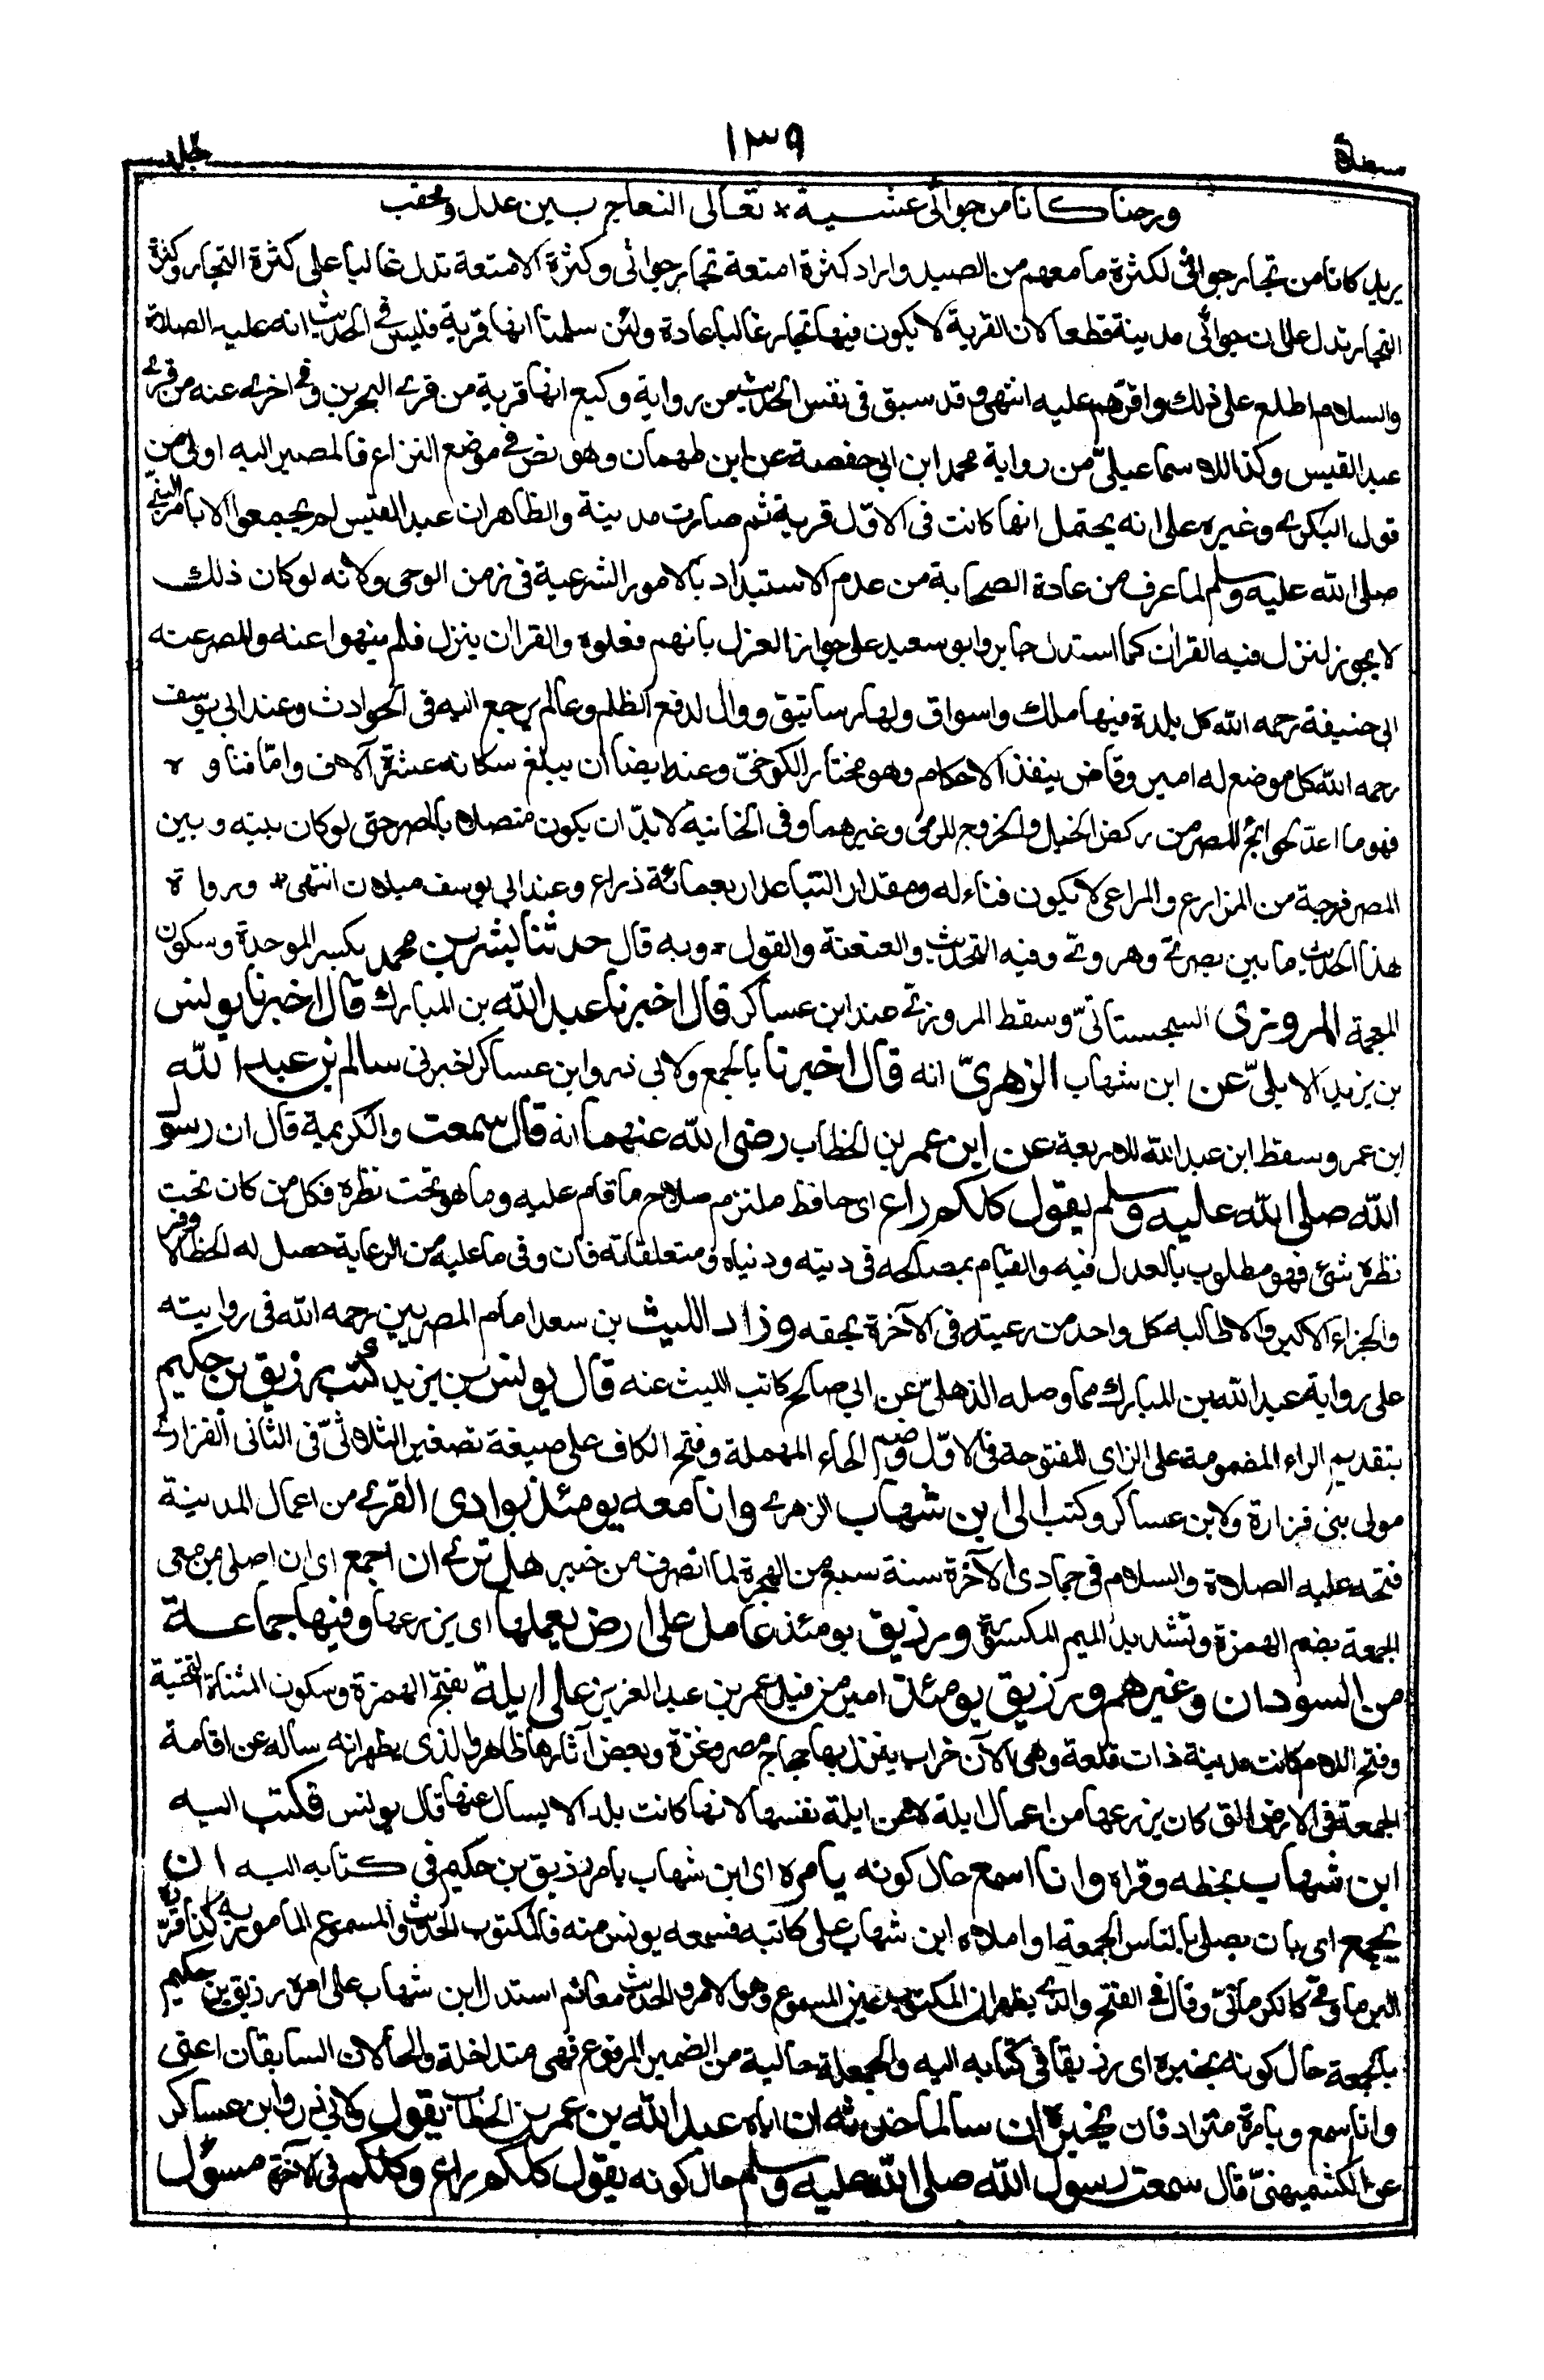 ١٣٩
ورحنا كانا من جواثى عشية * تعالى النعاج بين عدل ومحقب
يريد كانا من تجار جواثى لكثرة ما معهم من الصيد واراد كثرة امتعة تجار جواثى وكثرة الامتعة تدل غالبا على كثرة التجار وكثرة
التجار تدل على ان جواثى مدينة قطعا لان القرية لا يكون فيها تجار غالبا عادة ولئن سلمنا انها قرية فليس في الحديث انه عليه الصلاة
والسلام اطلع على ذلك واقرهم عليه انتهى وقد سبق فى نفس الحديث من رواية وكيع انها قرية من قرى البحرين وفى اخرى عنه من قرى
عبد القيس وكذا للاسماعيلىّ من رواية محمد ابن ابى حفصة عن ابن طهمان وهو نص فى موضع النزاع فالمصير اليه اولى من
قول البكرى وغيره على انه يحتمل انها كانت فى الاوّل قرية ثم صارت مدينة والظاهر ان عبد القيس لم يجمعوا الا بامر النبى
صلى الله عليه وسلم لما عرف من عادة الصحابة من عدم الاستبداد بالامور الشرعية فى زمن الوحى ولانه لو كان ذلك
لا يجوز لنزل فيه القران كما استدل جابر وابو سعيد على جواز العزل بانهم فعلوه والقران ينزل فلم ينهوا عنه وللمصر عنه
ابى حنيفة رحمه الله كل بلدة فيها ملك واسواق ولها رساتيق ووال لدفع الظلم وعالم يرجع اليه فى الحوادث وعند ابى يوسف
رحمه الله كل موضع له امير وقاض ينفذ الاحكام وهو مختار الكرخىّ وعنه ايضا ان يبلغ سكانه عشرة آلاف وامّا فناوه
فهو ما اعدّ لحوائج المصر من ركض الخيل والخروج للرمى وغيرهما وفى الخانية لا بدّ ان يكون متصلا بالمصر حتى لو كان بينه وبين
المصر فرجة من المزارع والمراعى لا يكون فناء له ومقدار التباعد اربعمائة ذراع وعند ابى يوسف ميلان انتهى * ورواة
هذا الحديث ما بين بصرى وهروى وفيه التحديث والعنعنة والقول * وبه قال حدثنا بشر بن محمد بكسر الموحدة وسكون
المعجمة المروزى السجستانىّ وسقط المروزى عند ابن عساكر قال اخبرنا عبد الله بن المبارك قال اخبرنا يونس
بن يزيد الايلىّ عن ابن شهاب الزهرىّ انه قال اخبرنا بالجمع ولابى ذر وابن عساكر اخبرنى سالم بن عبد الله
ابن عمر وسقط ابن عبد الله للاربعة عن ابن عمر بن الخطاب رضى الله عنهما انه قال سمعت والكريمة قال ان رسول
الله صلى الله عليه وسلم يقول كلكم راع اى حافظ ملتزم صلاح ما قام عليه وما هو تحت نظره فكل من كان تحت
نظره شئ فهو مطلوب بالعدل فيه والقيام بمصالحه فى دينه ودنياه ومتعلقاته فان وفى ما عليه من الرعاية حصل له الحظ الاوفر
والجزاء الاكبر والا طالبه كل واحد من رعيته فى الآخرة بحقه وزاد الليث بن سعد امام المصريين رحمه الله فى روايته
على رواية عبد الله بن المبارك مما وصله الذهلىّ عن ابى صالح كاتب الليث عنه قال يونس بن يزيد كتب رزيق بن حكيم
بتقديم الراء المضمومة على الزاى المفتوحة فى الاوّل وضم الحاء المهملة وفتح الكاف على صيغة تصغير الثلاثىّ فى الثانى الفزارى
مولى بنى فزارة ولابن عساكر وكتب الى ابن شهاب الزهرى وانا معه يومئذ بوادى القرى من اعمال المدينة
فتحه عليه الصلاة والسلام فى جمادى الآخرة سنة سبع من الهجرة لما انصرف من خيبر هل ترى ان اجمع اى ان اصلى بمن معى
الجمعة بضم الهمزة وتشديد الميم المكسورة ورزيق يومئذ عامل على ارض يعملها اى يزرعها وفيها جماعة
من السودان وغيرهم ورزيق يومئذ امير من قبل عمر بن عبد العزيز على ايلة بفتح الهمزة وسكون المثناة التحتية
وفتح اللام كانت مدينة ذات قلعة وهى الآن خراب ينزل بها حجاج مصر وغزة وبعض آثارها ظاهر والذى يظهر انه ساله عن اقامة
الجمعة فى الارض التى كان يزرعها من اعمال ايلة لا عن ايلة نفسها لانها كانت بلدا لا يسال عنها قال يونس فكتب اليه
ابن شهاب بخطه وقراه وانا اسمع حال كونه يامره اى ابن شهاب يامر رزيق بن حكيم فى كتابه اليه ان
يجمع اى بان يصلى بالناس الجمعة او املاه ابن شهاب على كاتبه فسمعه يونس منه فالمكتوب الحديث والمسموع المامور به كذا قرّره
البرماوى كالكرمانىّ وقال فى الفتح والذى يظهر ان المكتوب عين المسموع وهو الامر والحديث معا ثم استدل ابن شهاب على امره رزيق بن حكيم
بالجمعة حال كونه يخبره اى رزيقا فى كتابه اليه والجملة حالية من الضمير المرفوع فهى متداخلة والحالان السابقان اعنى
وانا اسمع ويامره مترادفان يخبره ان سالما حدثه ان اباه عبد الله بن عمر بن الخطاب يقول ولابى ذر وابن عساكر
عن الكشميهنىّ قال سمعت رسول الله صلى الله عليه وسلم حال كونه يقول كلكم راع وكلكم فى الآخرة مسؤل